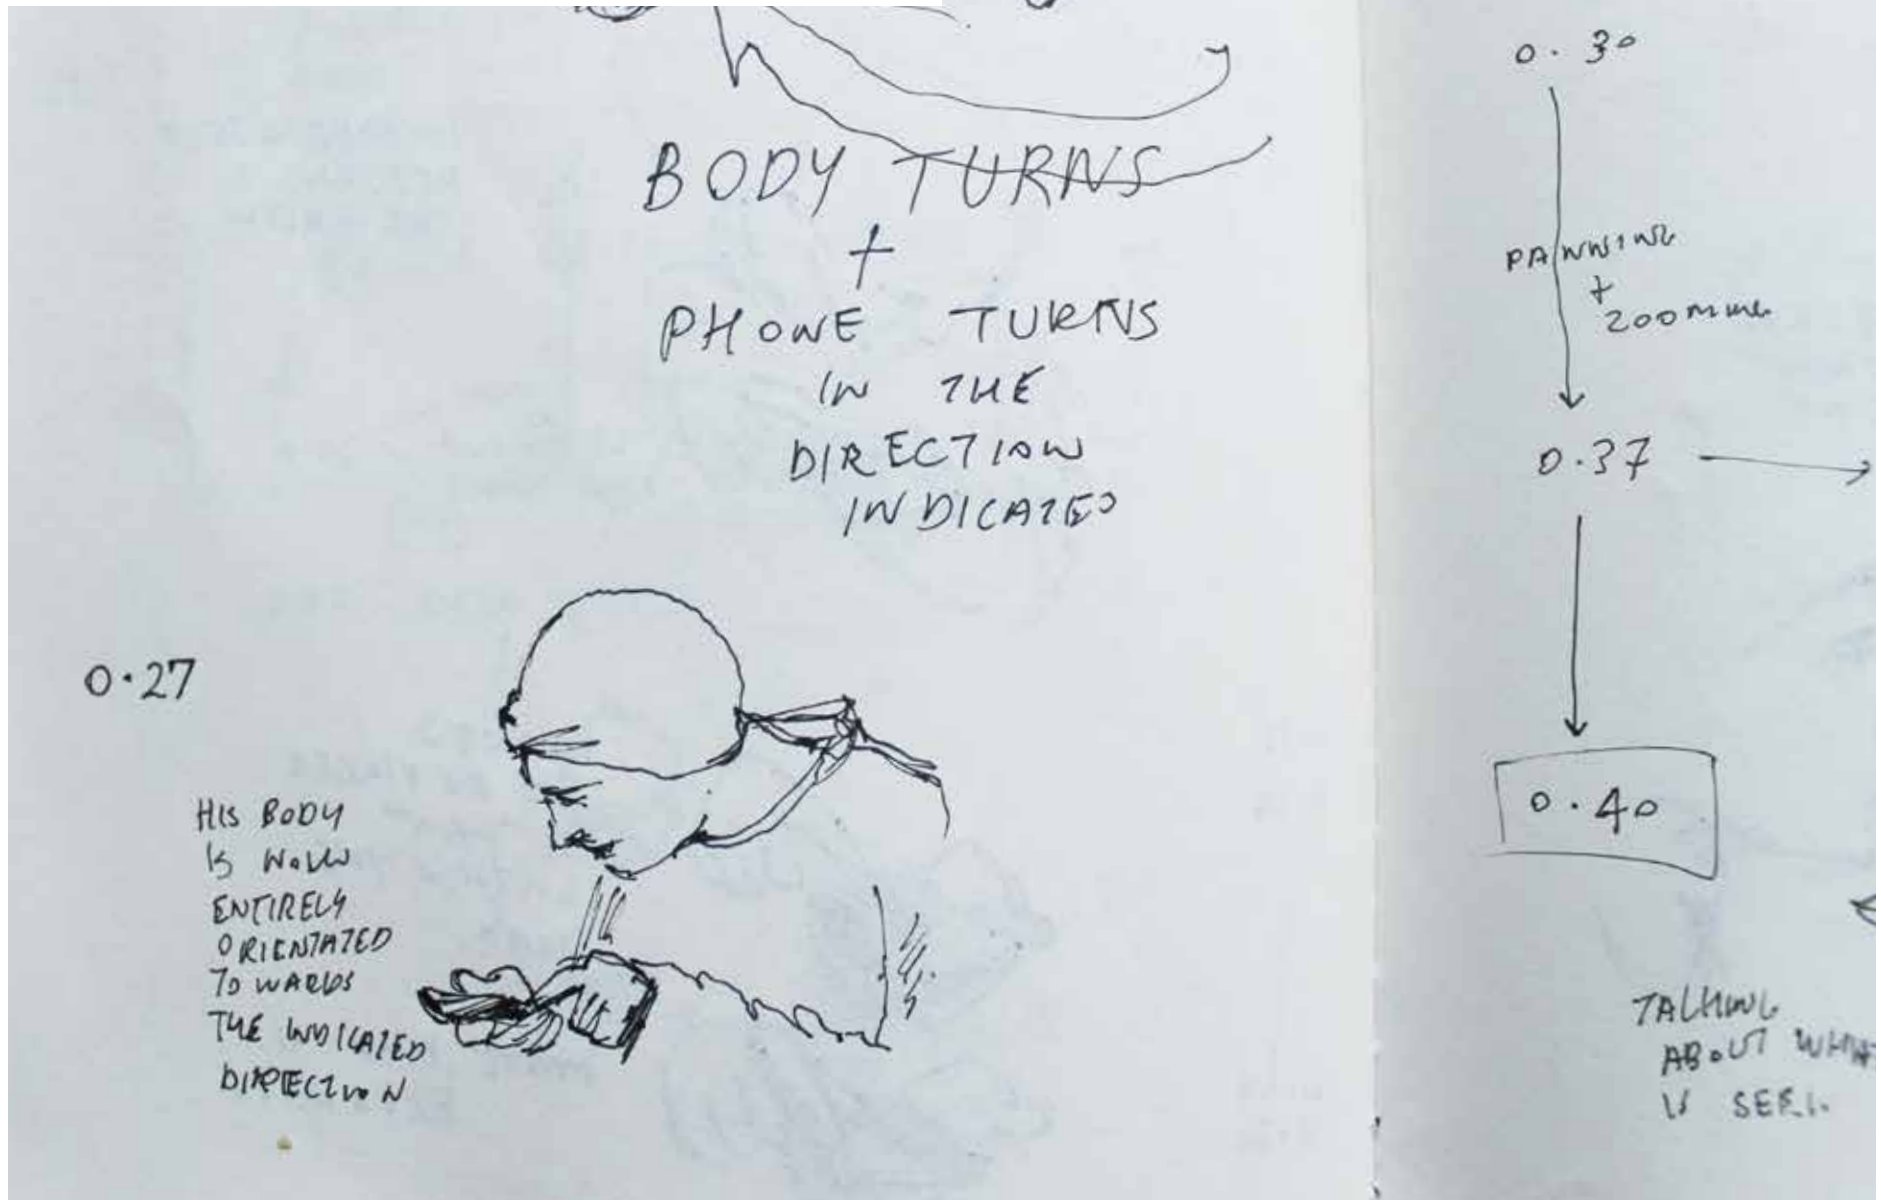 BODY TURNS
+
PHONE TURNS
IN THE
DIRECTION
INDICATED
0.27
HIS BODY
IS NOW
ENTIRELY
ORIENTATED
TOWARDS
THE INDICATED
DIRECTION
0.30
PANNING
+
ZOOMING
0.37
0.40
TALKING
ABOUT WHAT
IS SEEN.